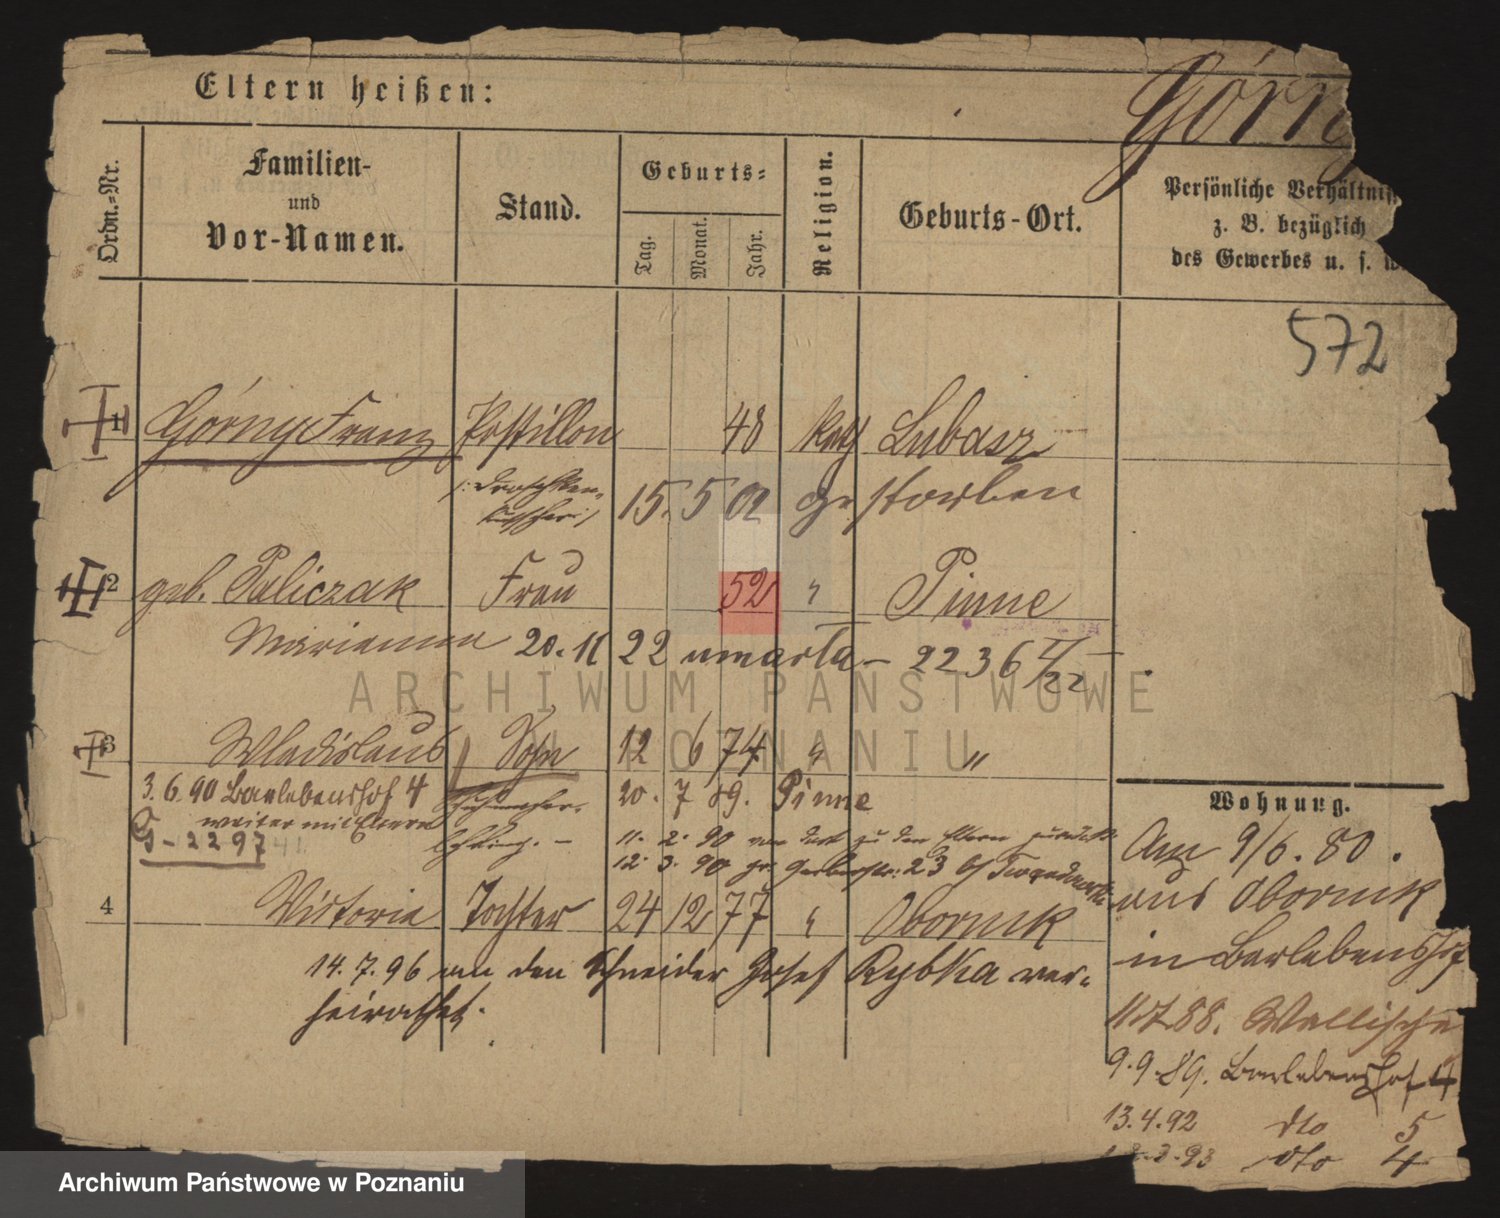 Eltern heißen:
Górny
Ordn.-Nr.
Familien-
und
Vor-Namen.
Stand.
Geburts-
Tag.
Monat.
Jahr.
Religion.
Geburts-Ort.
Persönliche Verhältnis
z. B. bezüglich
des Gewerbes u. s. w.
572
1 Górny Franz Postillon 48 kath Lubasz
/: Droschken-
kutscher :/ 15. 5 02 gestorben
2 geb. Paliczak Frau 52 " Pinne
Marianna 20. 11 22 umarła - 2236
3 Wladislaus Sohn 12 6 74 " "
3.6.90 Barlebenshof 4 20. 7 89. Pinne
weiter mit Eltern
G-2297
11. 2. 90 von dort zu den Eltern zurück
12. 3. 90 gr. Gerberstr. 23
4 Victoria Tochter 24 12 77 " Obornik
14. 7. 96 an den Schneider Josef Rybka ver-
heirathet.
Wohnung.
Am 9/6. 80.
aus Obornik
in Barlebenshof
88. Wallische
9.9.89. Barlebenshof 4
13.4.92 dto 5
3.93 dto 4
ARCHIWUM PAŃSTWOWE
W POZNANIU
Archiwum Państwowe w Poznaniu